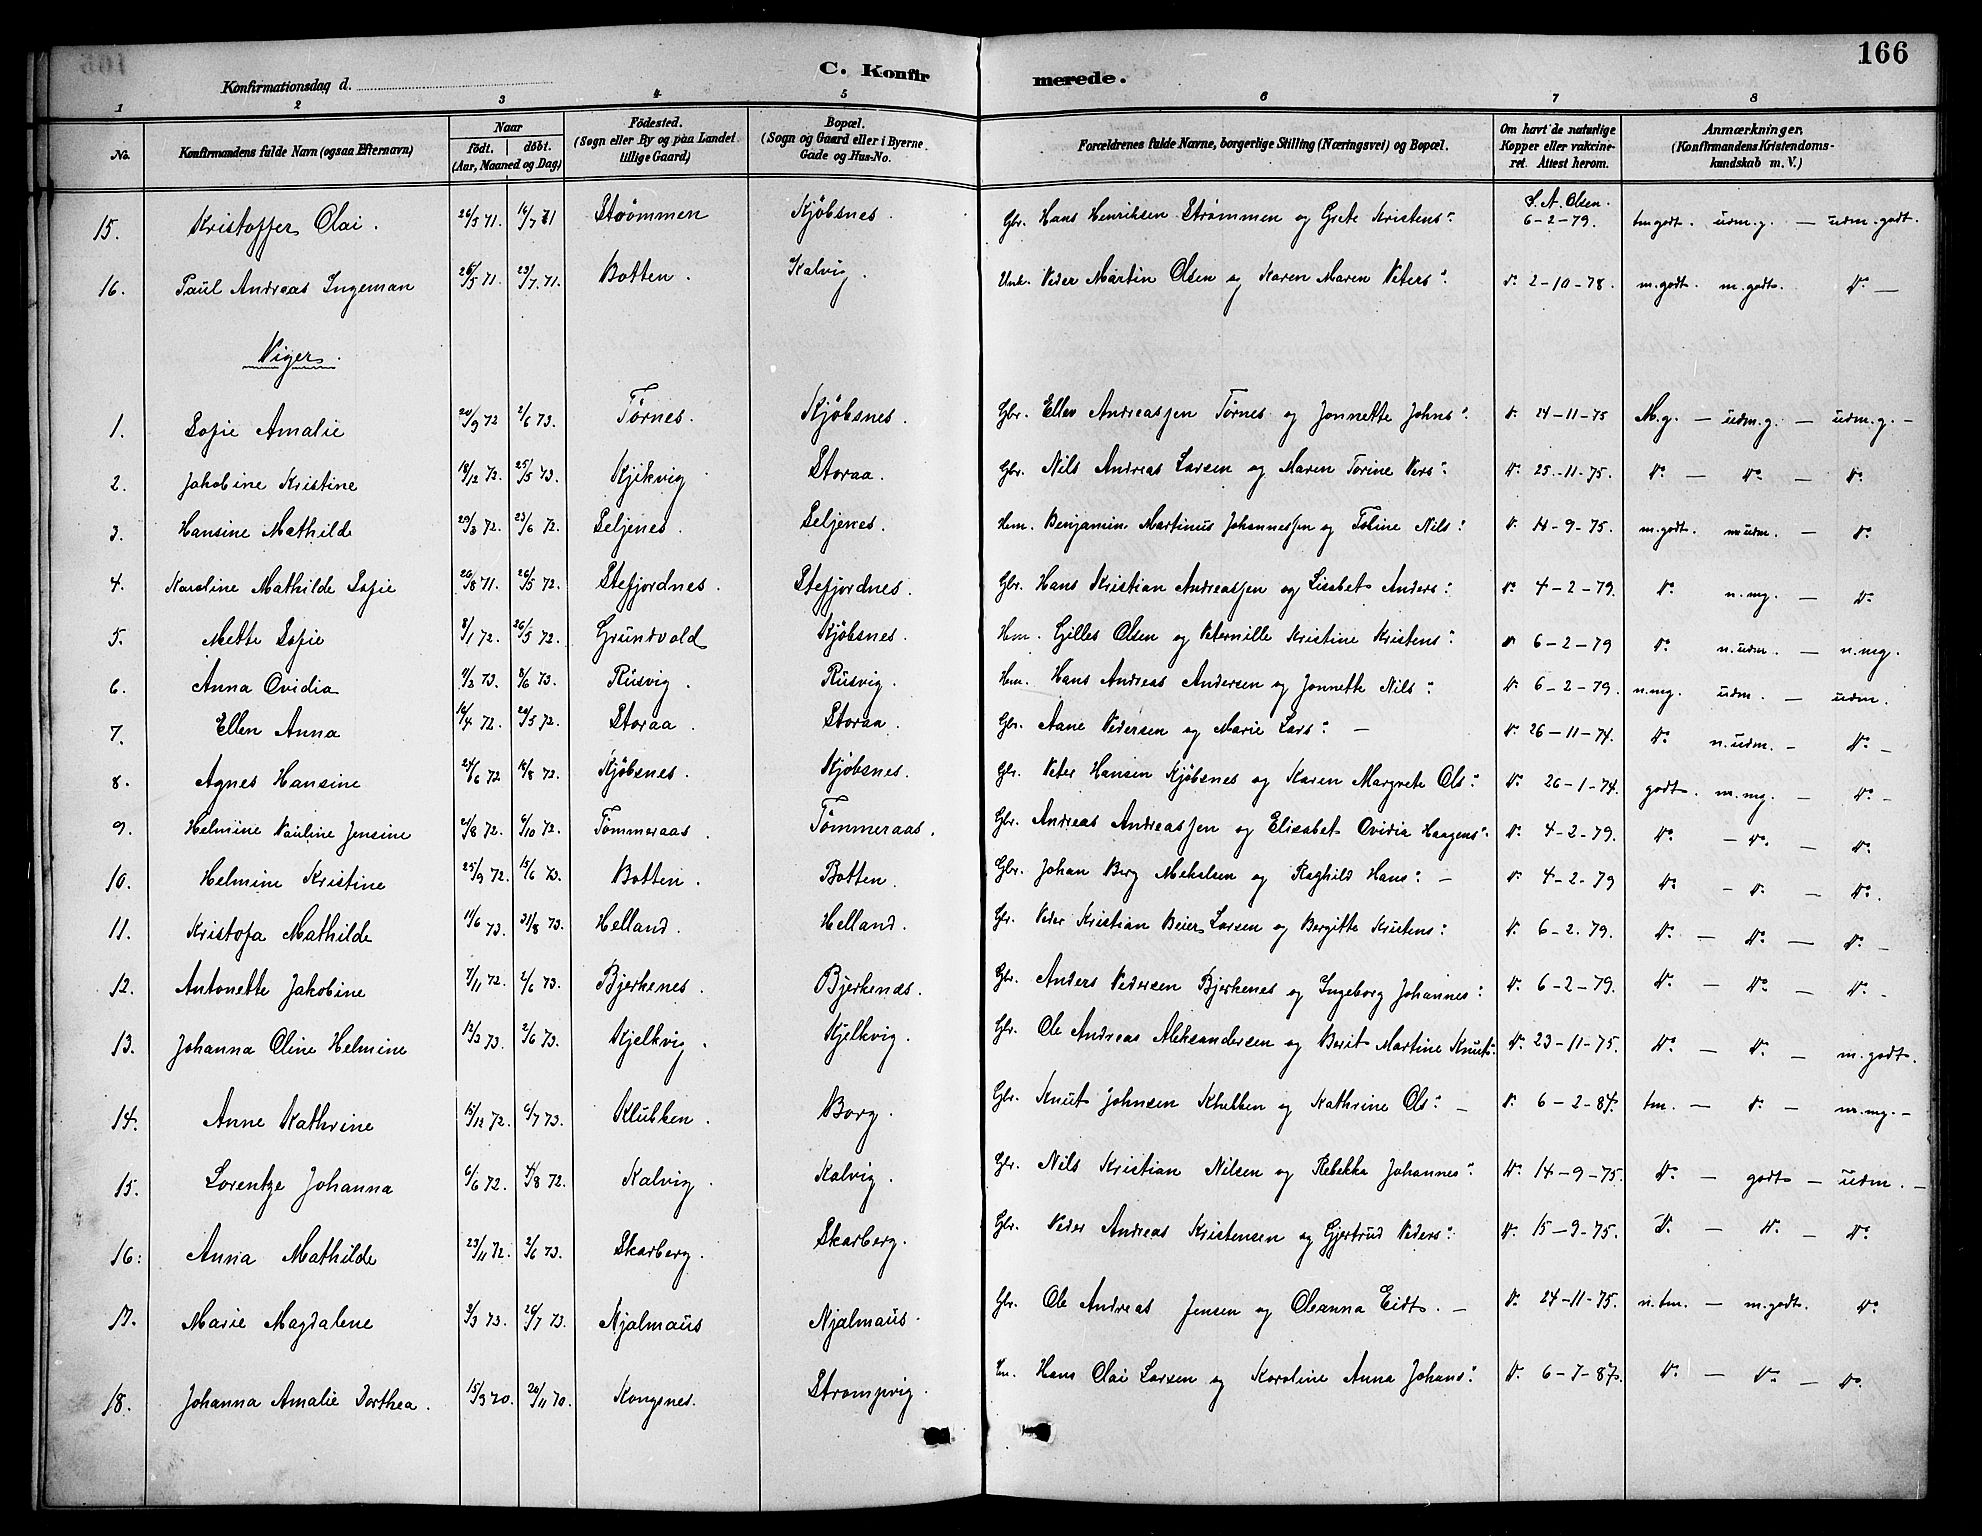 166
C. Konfirmerede.
Konfirmationsdag d.
1 2 3 4 5 6 7 8
No. Konfirmandens fulde Navn (ogsaa Efternavn) Naar födt. döbt. (Aar, Maaned og Dag) Födested. (Sogn eller By og paa Landet tillige Gaard) Bopæl. (Sogn og Gaard eller i Byerne Gade og Hus-No. Forældrenes fulde Navne, borgerlige Stilling (Næringsvei) og Bopæl. Om havt de naturlige Kopper eller vakcineret. Attest herom. Anmærkninger. (Konfirmandens Kristendomskundskab m. V.)
15. Kristoffer Olai. 26/5 71. 16/7 71 Strømmen Kjöbsnes. Gbr. Hans Henriksen Strømmen og Grete Kristens: S. A. Olsen. 6-2-79. tm.godt. udm.g. — udm.godt.
16. Paul Andreas Ingeman 26/5 71. 23/7 71. Botten. Kalvig. Unk. Peder Martin Olsen og Karen Maren Peters: Do 2-10-78. m.godt. m.godt. Do —
Piger.
1. Sofie Amalie 20/9 72 2/6 73. Tørnes. Kjöbsnes. Gbr. Ellev Andreassen Tørnes og Jonnette Johns: Do 24-11-75 M.g. — udm.g. — udm.g. —
2. Jakobine Kristine 18/12 72. 25/5 73. Kjikvig Storaa. Gbr. Nils Andreas Larsen og Maren Torine Pers: Do 25-11-75. Do — Do — Do
3. Hansine Mathilde 29/3 72. 23/6 72. Seljenes. Seljenes. Hm. Benjamin Martinus Johannessen og Toline Nils: Do 14-9-75. m.godt. m.udm. — Do
4. Karoline Mathilde Sofie 20/8 71. 26/5 72. Stefjordnes. Stefjordnes. Gbr. Hans Kristian Andreassen og Lisabet Anders: Do 4-2-79. Do n.mg. — Do
5. Mette Sofie 8/1 72. 26/5 72. Grundvold Kjöbsnes. Hm. Gilles Olsen og Peternille Kristine Kristens: Do 6-2-79 Do n.udm. — n.mg.
6. Anna Ovidia 11/3 73. 8/6 73. Rusvig. Rusvig. Hm. Hans Andreas Andersen og Jonnette Nils: Do 6-2-79. n.mg. udm. — udm.
7. Ellen Anna 16/4 72. 20/5 72. Storaa. Storaa. Gbr. Aane Pedersen og Marie Lars: — Do 26-11-74. Do n.udm. — Do —
8. Agnes Hansine 24/6 72 18/8 72. Kjöbsnes. Kjöbsnes. Gbr. Peter Hansen Kjöbsnes og Karen Margrete Ols: Do 26-1-74. godt. m.mg. — Do —
9. Helmine Pauline Jensine 2/8 72. 6/10 72. Tømmeraas. Tømmeraas. Gbr. Andreas Andreassen og Elisabet Ovidia Haagens: Do 4-2-79. Do — Do — Do
10. Helmine Kristine 25/9 72. 15/6 73. Botten. Botten. Gbr. Johan Berg Mekelsen og Raghild Hans: — Do 4-2-79 Do — Do — Do
11. Kristofa Mathilde 11/6 73. 31/8 73. Helland. Helland. Gbr. Peder Kristian Beier Larsen og Bergitte Kristens: Do 6-2.79. Do — Do — Do —
12. Antonette Jakobine 7/11 72. 2/6 73. Bjerkenes. Bjerkenæs. Gbr. Anders Pedersen Bjerkenes og Ingeborg Johannes: Do 6-2-79. Do — Do — Do —
13. Johanna Oline Helmine 12/3 73. 2/6 73. Kjelkvig. Kjelkvig. Gbr. Ole Andreas Aleksandersen og Berit Martine Knuts: Do 23-11-75. Do — Do — m.godt.
14. Anne Kathrine 15/12 72. 6/7 73. Klubben. Borg. Gbr. Knut Johnsen Klubben og Kathrine Ols: — Do 6-2-87. tm. — Do — m.mg. —
15. Lorentze Johanna 6/6 72. 4/8 72. Kalvig. Kalvig. Gbr. Nils Kristian Nilsen og Rebekka Johannes: Do 14-9-75. Do — godt — udm. —
16: Anna Mathilde 23/11 72. 2/6 73. Skarberg. Skarberg. Gbr. Peder Andreas Kristensen og Gjertrud Peders: Do 15-9-75. Do — Do — Do
17. Marie Magdalene 3/3 73. 26/7 73. Njalmaus Njalmaus. Gbr. Ole Andreas Jensen og Oleanna Eidt. — Do 24-11-75. n.tm. — m.godt. Do
18. Johanna Amalie Dorthea. 15/9 70. 20/11 70. Kongsnes. Strompvig. Hans Olai Larsen og Karoline Anna Johans: Do 6-7-87. Do — Do — Do